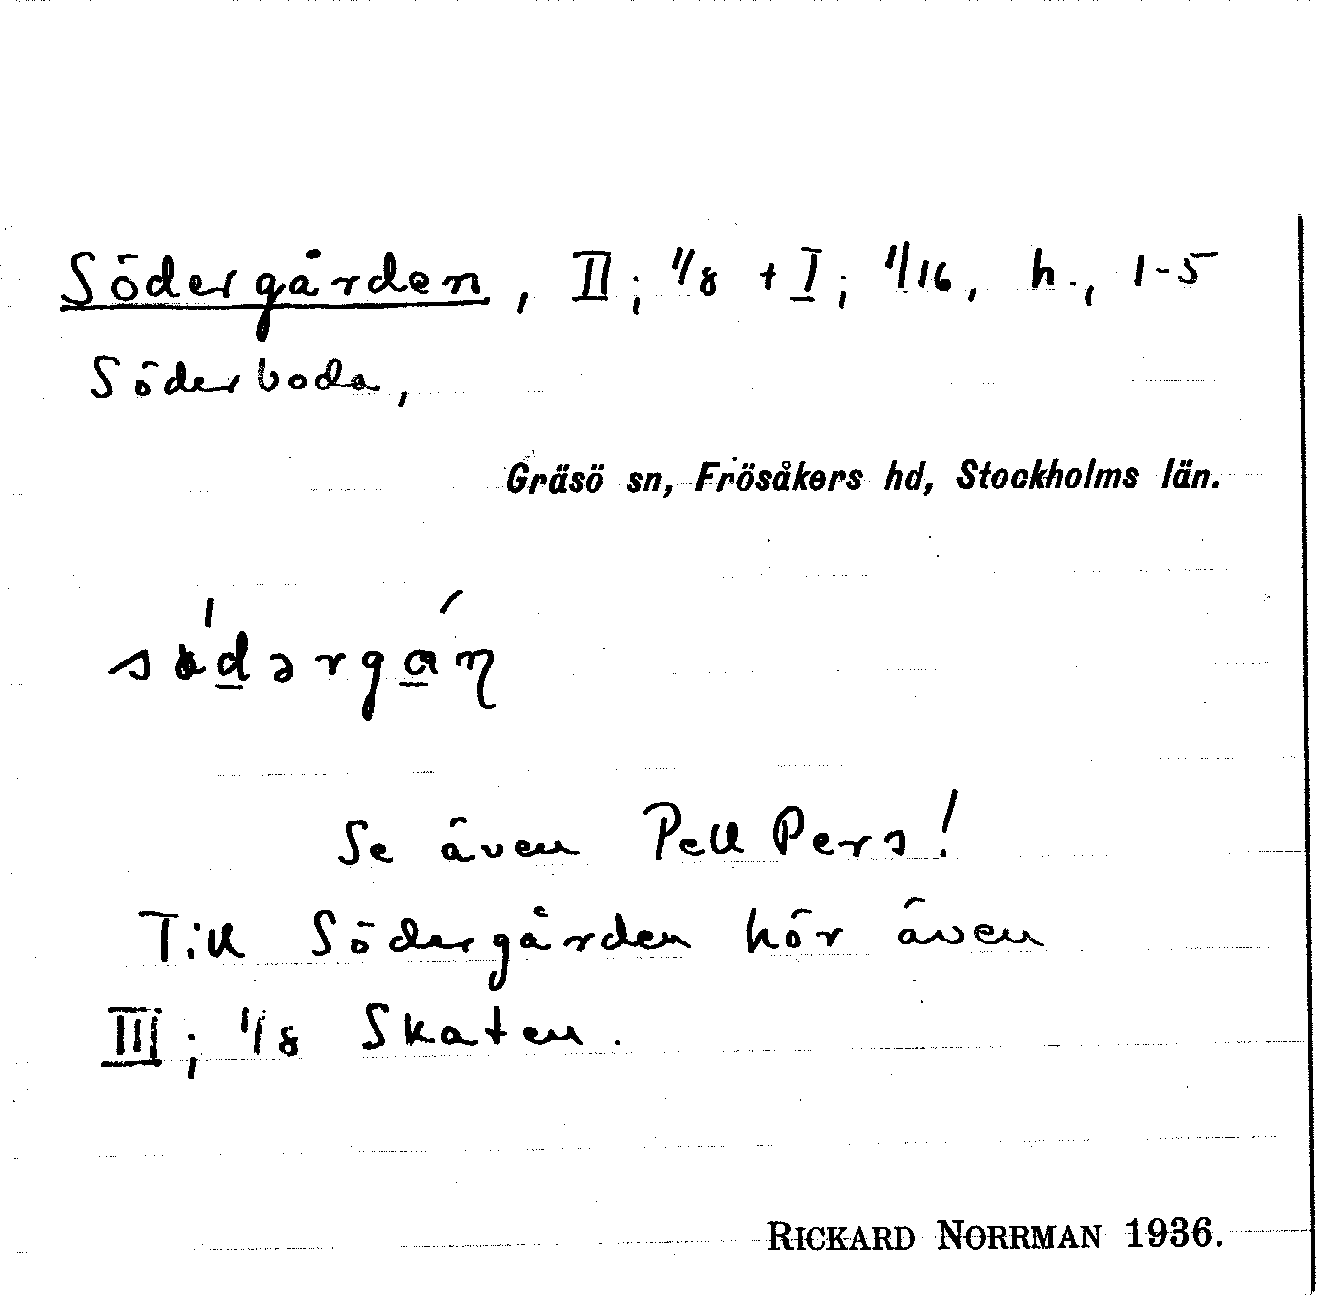 Södergården, II; 1/8 + I; 1/16, h., 1-5
Söderboda,
Gräsö sn, Frösåkers hd, Stockholms län.
Se även Pell Pers!
Till Södergården hör även
III; 1/8 Skaten.
RICKARD NORRMAN 1936.